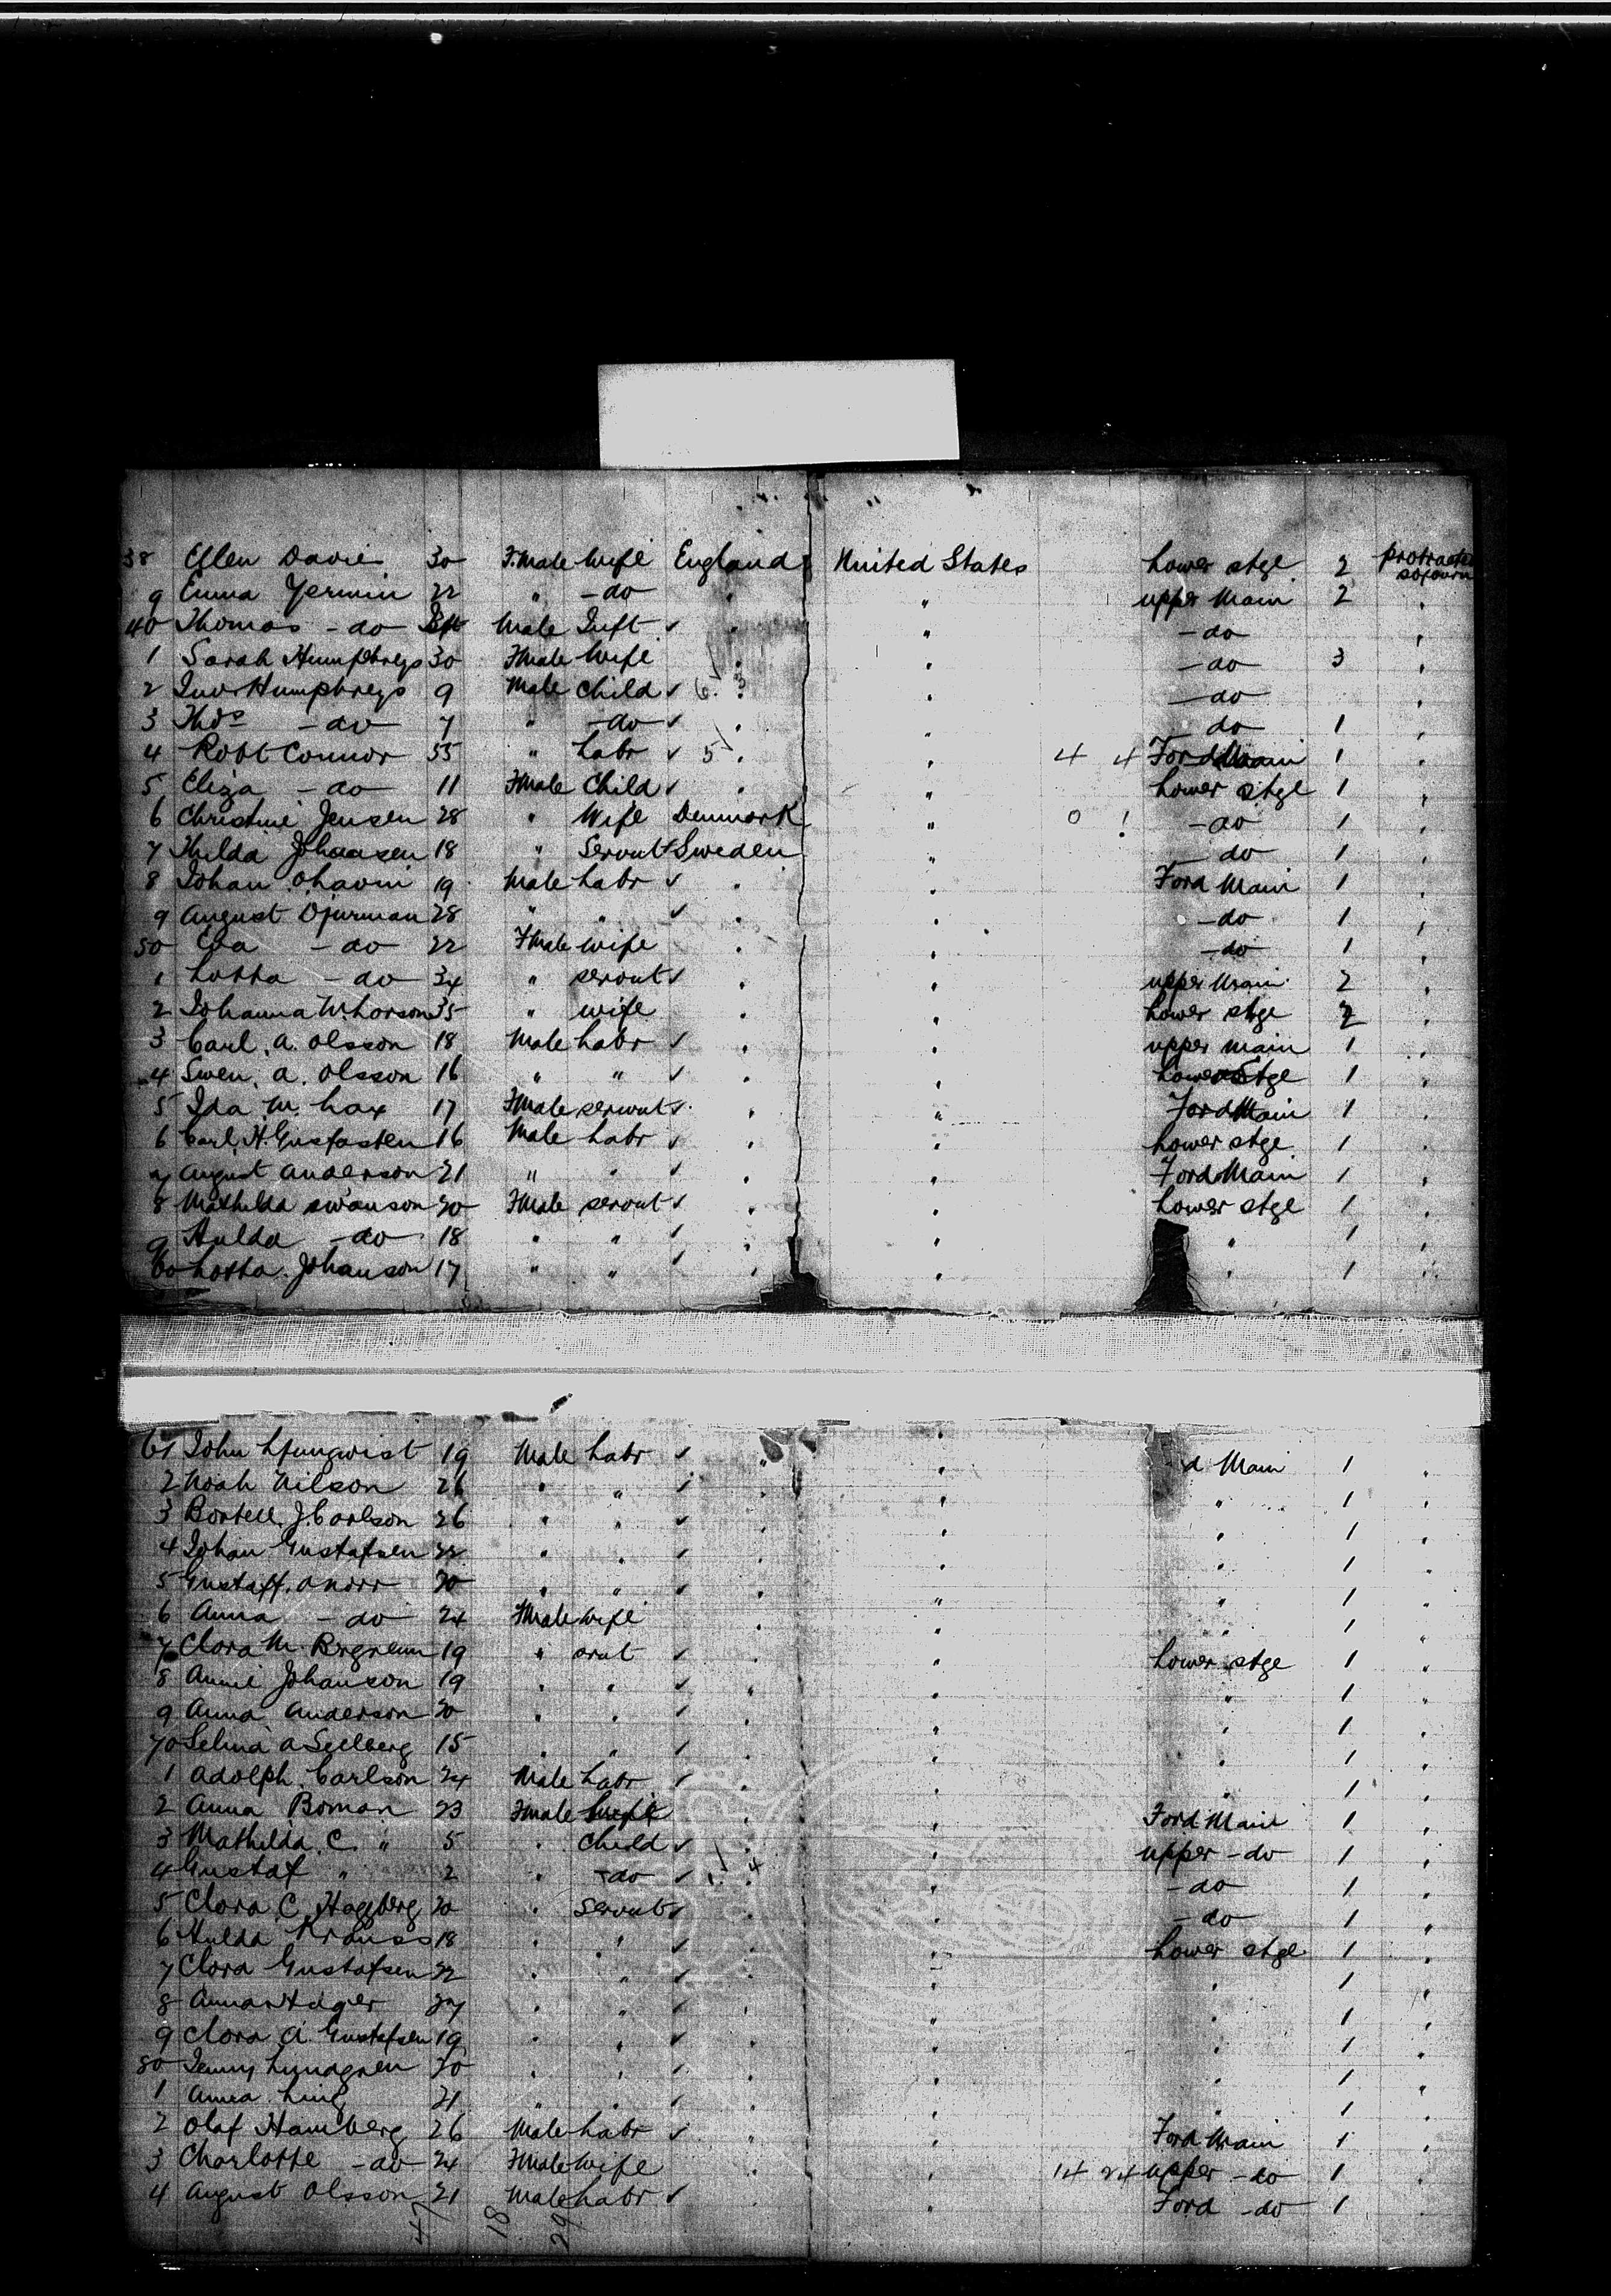 38 Ellen Davie 30 F.Male Wife England United States Lower stge 2 protracted sojourn
9 Emma Jermin 22 " -do " " upper Main 2 "
40 Thomas -do Male Inft ✓ " " -do "
1 Sarah Humphreys 30 FMale Wife " " -do 3 "
2 Humphreys 9 Male Child ✓ 6 3 " -do "
3 Thos -do 7 " -do ✓ " " do 1 "
4 Robt Connor 55 " Labr ✓ 5 " " 4 4 Ford Main 1 "
5 Eliza -do 11 FMale Child ✓ " " Lower stge 1 "
6 Christine Jensen 28 " Wife Denmark " 0 ! -do 1 "
7 Hilda Johansen 18 " Servnt ✓ Sweden " do 1 "
8 Johan 19 Male Labr ✓ " " Ford Main 1 "
9 August Djurman 28 " " ✓ " " -do 1 "
50 Eva -do 22 FMale wife " " -do 1 "
1 Lotta -do 34 " servnt ✓ " " upper Main 2 "
2 Johanna W. Larson 35 " wife " " Lower stge 2 "
3 Carl. A. Olsson 18 Male Labr ✓ " " upper main 1 "
4 Swen. A. Olsson 16 " " ✓ " " Lower Stge 1 "
5 Ida M. Lax 17 FMale servnt ✓ " " Ford Main 1 "
6 Carl. H. Gustafsten 16 Male Labr ✓ " " Lower stge 1 "
7 August Anderson 21 " " ✓ " " Ford Main 1 "
8 Mathilda Swanson 20 FMale servnt ✓ " " Lower stge 1 "
9 Hulda -do 18 " " ✓ " " " 1 "
60 Lotta. Johanson 17 " " ✓ " " " 1 "
61 John Ljungwist 19 Male Labr ✓ " " d Main 1 "
2 Noah Nilson 26 " " ✓ " " " 1 "
3 J. Carlson 26 " " ✓ " " " 1 "
4 Johan Gustafsen 22 " " ✓ " " " 1 "
5 Gustaff. 30 " " ✓ " " " 1 "
6 Anna -do 24 FMale wife " " " 1 "
7 Clara M. 19 " srvt ✓ " Lower stge 1 "
8 Annie Johanson 19 " " ✓ " " " 1 "
9 Anna Anderson 20 " " ✓ " " " 1 "
70 Selma A 15 " " ✓ " " " 1 "
1 Adolph. Carlson 24 Male Labr ✓ " " " 1 "
2 Anna Boman 23 FMale Wife " " Ford Main 1 "
3 Mathilda. C. " 5 " Child ✓ " " upper -do 1 "
4 Gustaf " 2 " -do ✓ 1 4 " -do 1 "
5 Clara C. Hagberg 20 " Servnt ✓ " -do 1 "
6 Hulda Krauss 18 " " ✓ " " Lower stge 1 "
7 Clara Gustafsen 22 " " ✓ " " " 1 "
8 Anna Hager 27 " " ✓ " " " 1 "
9 Clara A. Gustafsen 19 " " ✓ " " " 1 "
80 Jenny Lundgren 20 " " ✓ " " " 1 "
1 Anna Ling 21 " " ✓ " " " 1 "
2 Olaf Hamberg 26 Male Labr ✓ " " Ford Main 1 "
3 Charlotte -do 24 FMale Wife " " 14 24 upper -do 1 "
4 August Olsson 21 Male Labr ✓ " Ford -do 1
47 18 29